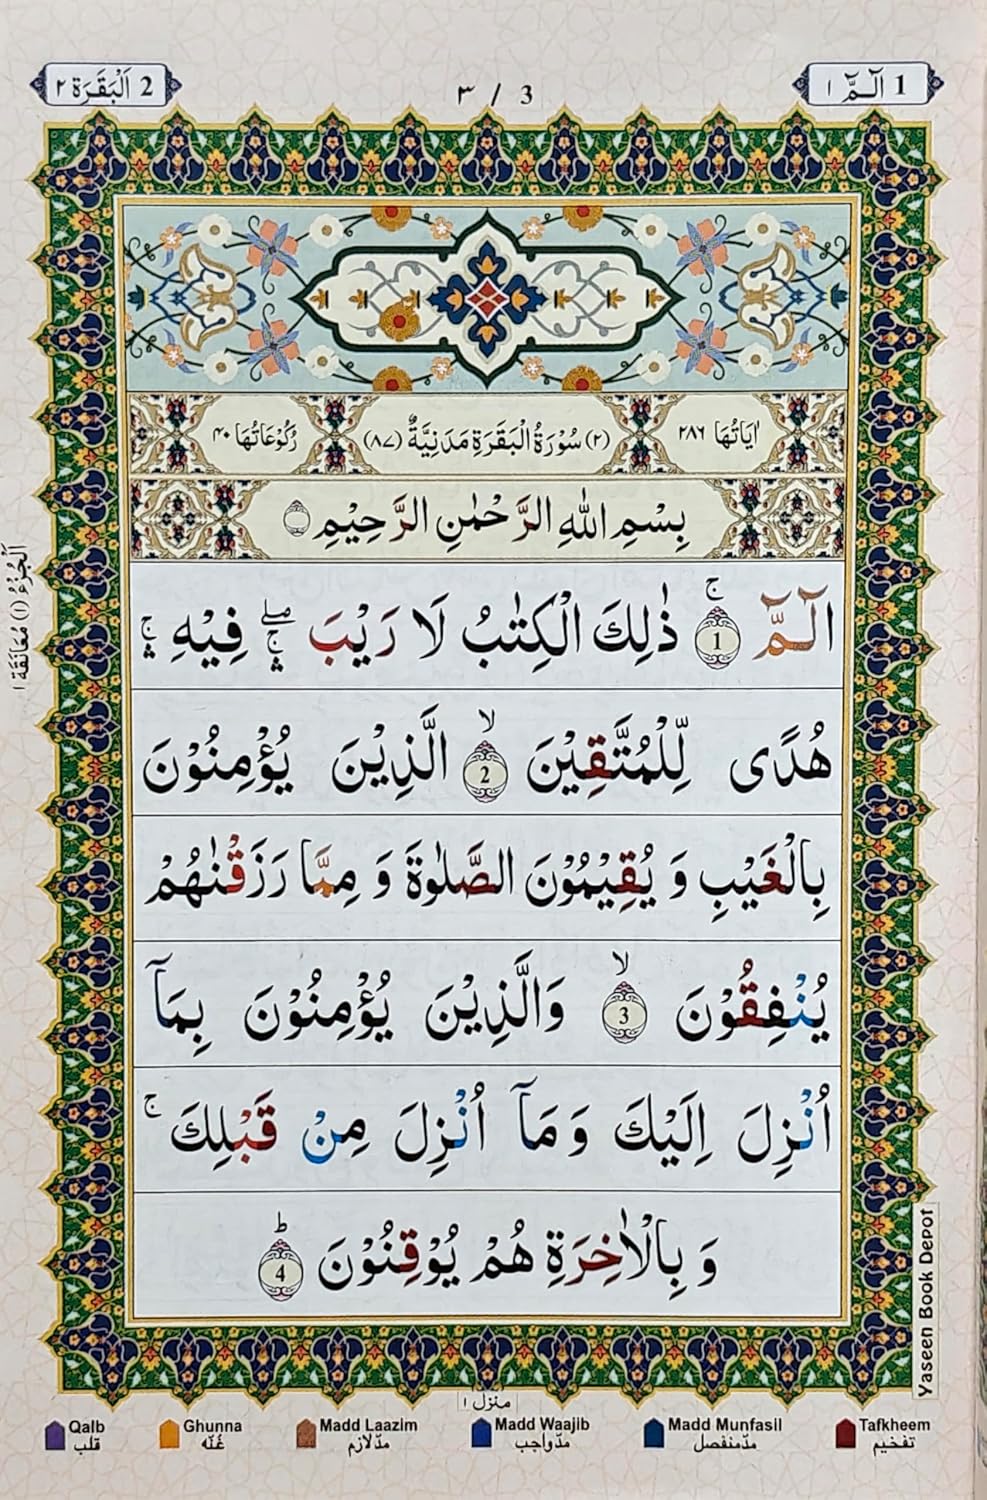 1 الٓمّٓ ١
٣ / 3
2 اَلْبَقَرَة ٢
اٰيَاتُهَا ٢٨٦
(٢) سُوْرَةُ الْبَقَرَةِ مَدَنِيَّةٌ (٨٧)
رُكُوْعَاتُهَا ٤٠
بِسْمِ اللّٰهِ الرَّحْمٰنِ الرَّحِيْمِ
الٓمّٓ ۚ 1 ذٰلِكَ الْكِتٰبُ لَا رَيْبَ ۛۖۚ فِيْهِ ۛۚ
هُدًى لِّلْمُتَّقِيْنَ ۙ 2 الَّذِيْنَ يُؤْمِنُوْنَ
بِالْغَيْبِ وَ يُقِيْمُوْنَ الصَّلٰوةَ وَ مِمَّا رَزَقْنٰهُمْ
يُنْفِقُوْنَ ۙ 3 وَالَّذِيْنَ يُؤْمِنُوْنَ بِمَآ
اُنْزِلَ اِلَيْكَ وَ مَآ اُنْزِلَ مِنْ قَبْلِكَ ۚ
وَ بِالْاٰخِرَةِ هُمْ يُوْقِنُوْنَ ؕ 4
اَلْجُزْءُ (١) مُعَانَقَة ١
Yaseen Book Depot
منزل ١
Qalb Ghunna Madd Laazim Madd Waajib Madd Munfasil Tafkheem
قلب غُنّه مدّ لازم مدّ واجب مدّ منفصل تفخیم